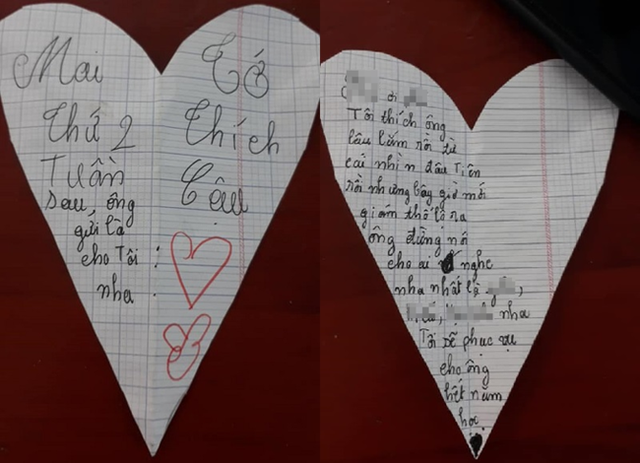 Mai
Thứ 2
Tuần
sau, ông
gửi là
cho Tôi :
nha .
Tớ
Thích
Cậu
ơi
Tôi thích ông
lâu lắm rồi từ
cai nhìn đâu Tiên
rồi nhưng bây giờ mới
giám thổ lộ ra
ông đừng nó
cho ai nghe
nha nhất là
nha
Tôi sẽ phục vụ
cho ông
hết năm
học